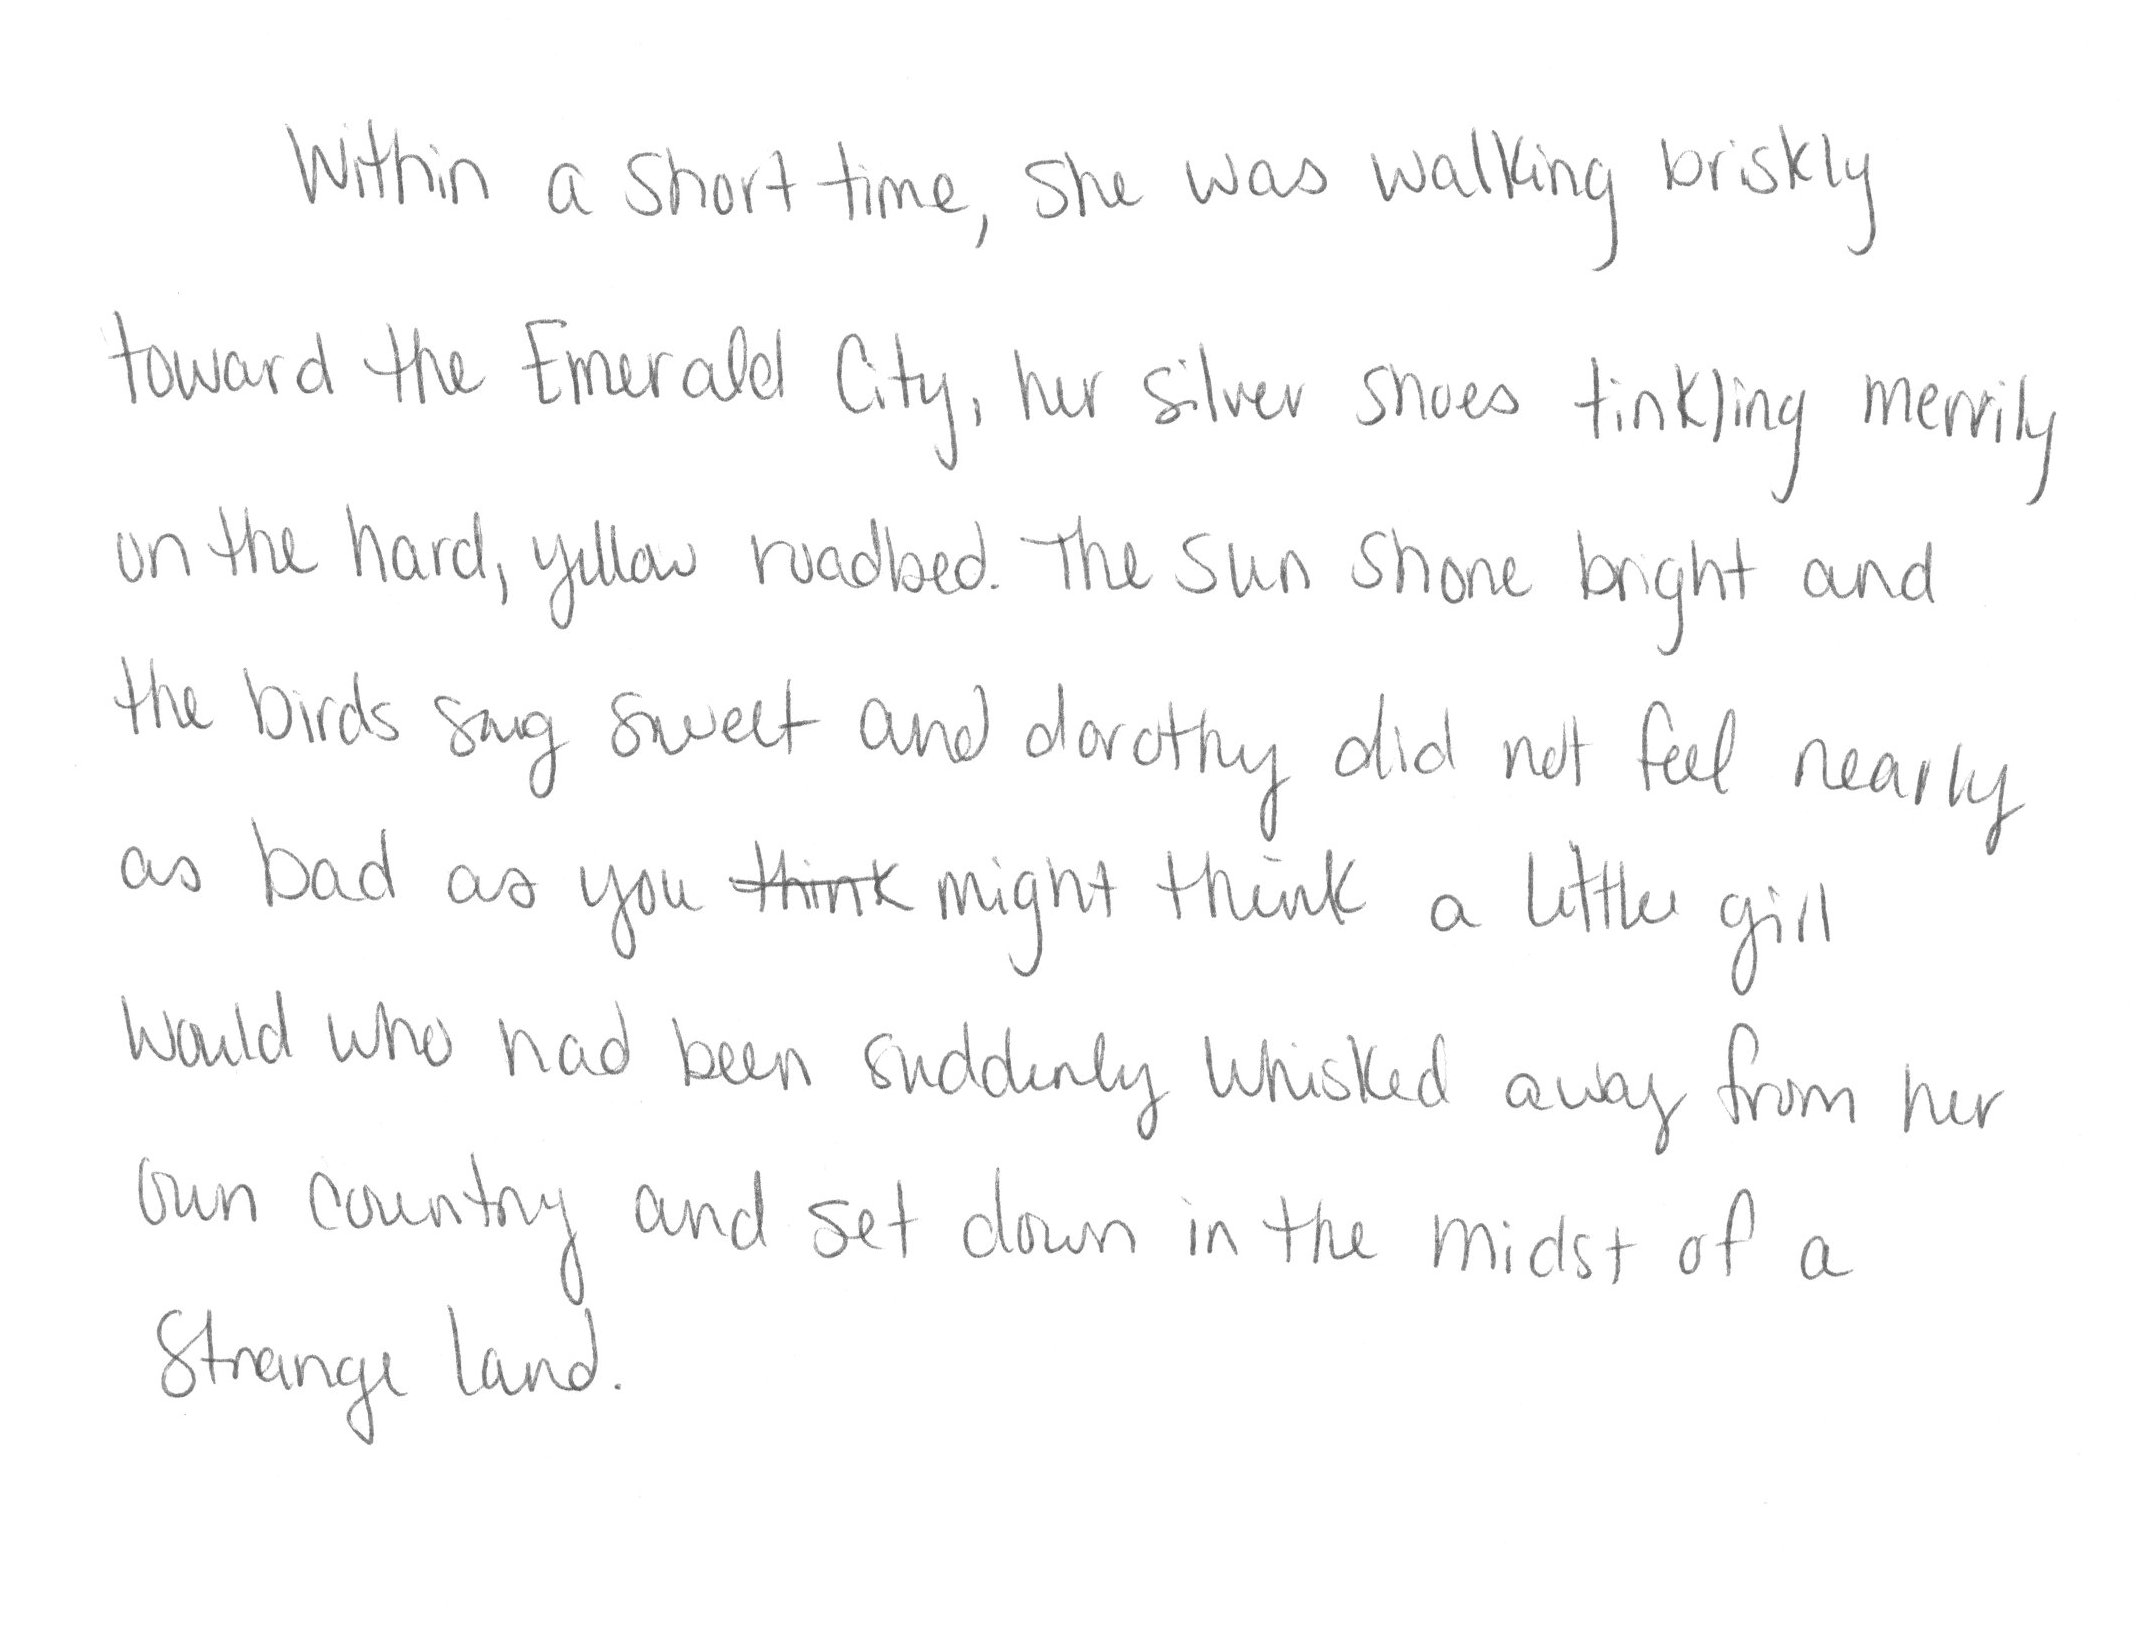 Within a short time, she was walking briskly
toward the Emerald City, her silver shoes tinkling merrily
on the hard, yellow roadbed. The sun shone bright and
the birds sang sweet and dorothy did not feel nearly
as bad as you ~~think~~ might think a little girl
would who had been suddenly whisked away from her
own country and set down in the midst of a
strange land.